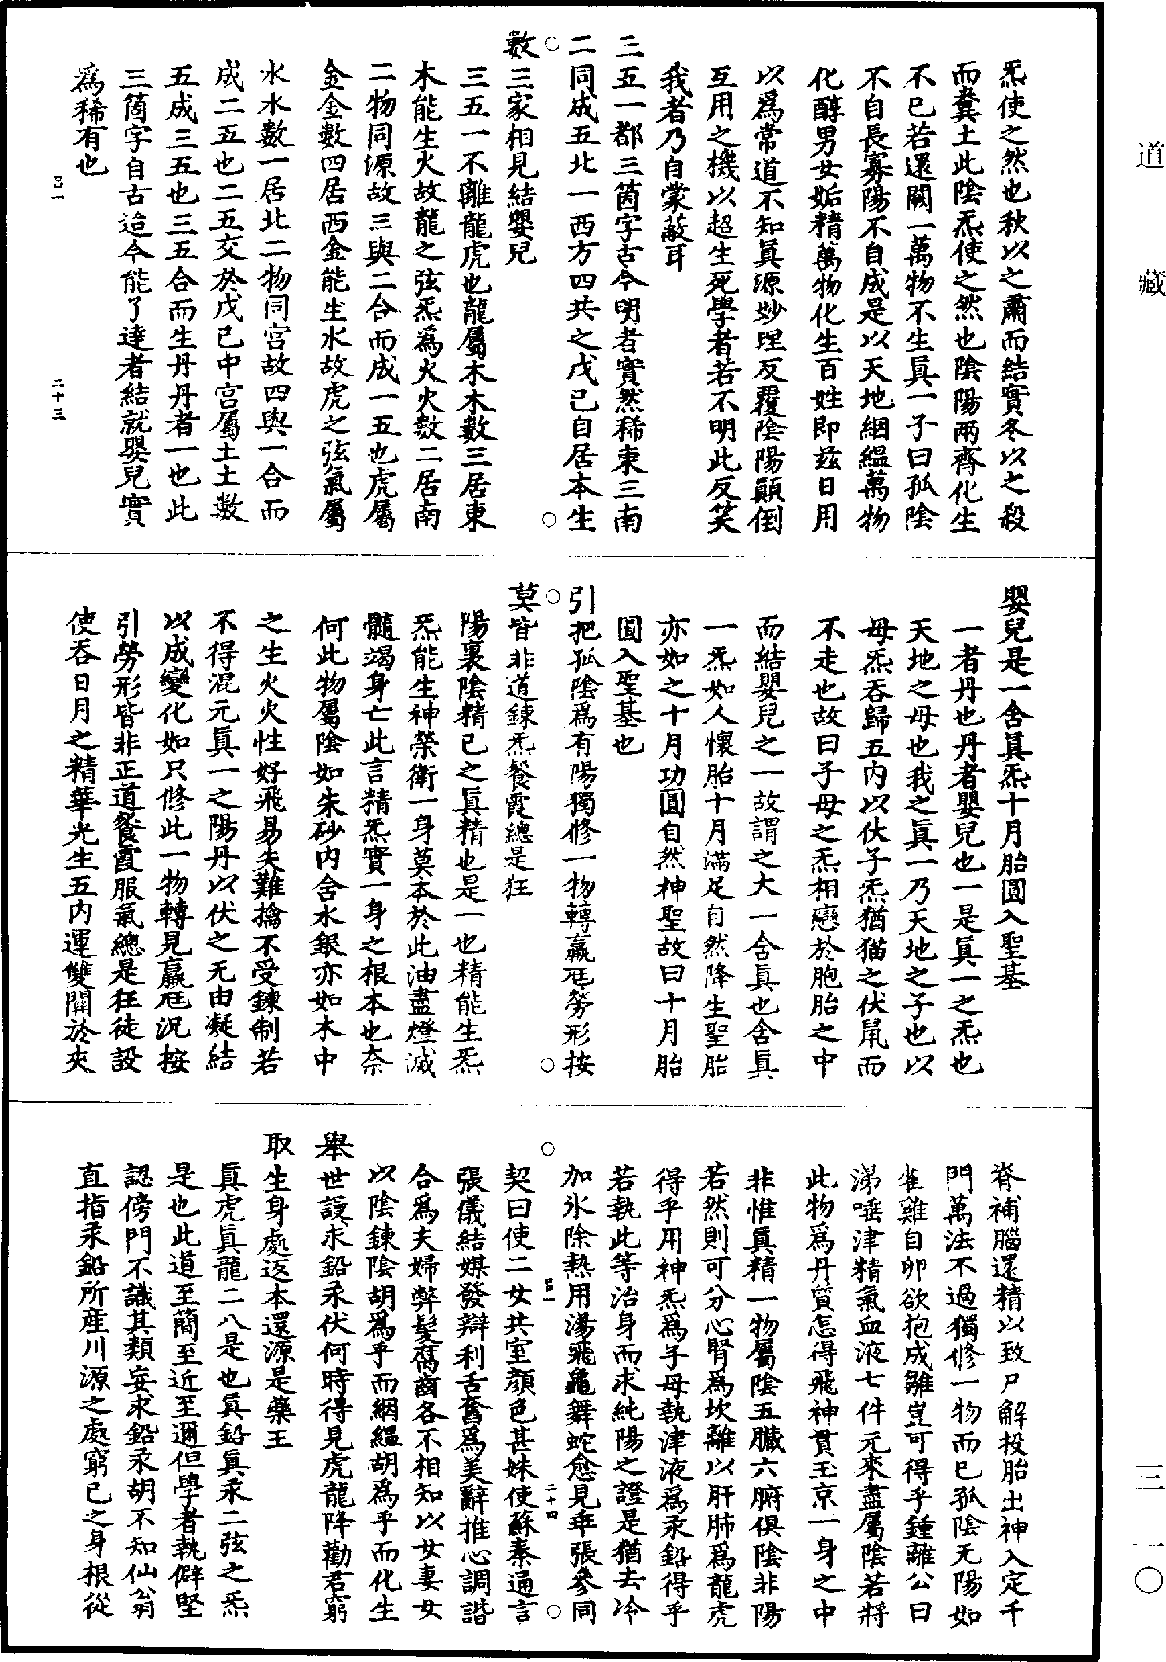 道藏
三一〇
炁使之然也秋以之肅而結實冬以之殺
而糞土此陰炁使之然也陰陽兩齊化生
不已若還闕一萬物不生真一子曰孤陰
不自長寡陽不自成是以天地絪縕萬物
化醇男女姤精萬物化生百姓即茲日用
以為常道不知真源妙理反覆陰陽顛倒
互用之機以超生死學者若不明此反笑
我者乃自蒙蔽耳
三五一都三箇字古今明者實然稀東三南
二同成五北一西方四共之戊己自居本生
數三家相見結嬰兒
三五一不離龍虎也龍屬木木數三居東
木能生火故龍之弦炁為火火數二居南
二物同源故三與二合而成一五也虎屬
金金數四居西金能生水故虎之弦氣屬
水水數一居北二物同宮故四與一合而
成二五也二五交於戊己中宮屬土土數
五成三五也三五合而生丹丹者一也此
三箇字自古迨今能了達者結就嬰兒實
為稀有也
呂一
二十三
嬰兒是一含真炁十月胎圓入聖基
一者丹也丹者嬰兒也一是真一之炁也
天地之母也我之真一乃天地之子也以
母炁吞歸五內以伏子炁猶猫之伏鼠而
不走也故曰子母之炁相戀於胞胎之中
而結嬰兒之一故謂之大一含真也含真
一炁如人懷胎十月滿足自然降生聖胎
亦如之十月功圓自然神聖故曰十月胎
圓入聖基也
引把孤陰為有陽獨修一物轉羸尪勞形按
莫皆非道鍊炁餐霞總是狂
陽裏陰精己之真精也是一也精能生炁
炁能生神榮衛一身莫本於此油盡燈滅
髓竭身亡此言精炁實一身之根本也奈
何此物屬陰如朱砂內含水銀亦如木中
之生火火性好飛易失難擒不受鍊制若
不得混元真一之陽丹以伏之无由凝結
以成變化如只修此一物轉見羸尪況按
引勞形皆非正道餐霞服氣總是狂徒設
使吞日月之精華光生五內運雙關於夾
脊補腦還精以致尸解投胎出神入定千
門萬法不過獨修一物而已孤陰无陽如
隺雞自卵欲抱成雛豈可得乎鍾離公曰
涕唾津精氣血液七件元來盡屬陰若將
此物為丹質怎得飛神貫玉京一身之中
非惟真精一物屬陰五臟六腑俱陰非陽
若然則可分心腎為坎離以肝肺為龍虎
得乎用神炁為子母執津液為汞鉛得乎
若執此等治身而求純陽之證是猶去冷
加氷除熱用湯飛龜舞蛇愈見乖張參同
呂一
二十四
契曰使二女共室顏色甚姝使蘇秦通言
張儀結媒發辯利舌奮為美辭推心調諧
合為夫婦弊髮腐齒各不相知以女妻女
以陰鍊陰胡為乎而絪縕胡為乎而化生
舉世謾求鉛汞伏何時得見虎龍降勸君窮
取生身處返本還源是藥王
真虎真龍二八是也真鉛真汞二弦之炁
是也此道至簡至近至邇但學者執僻堅
認傍門不識其類妄求鉛汞胡不知仙翁
直指汞鉛所產川源之處窮己之身根從